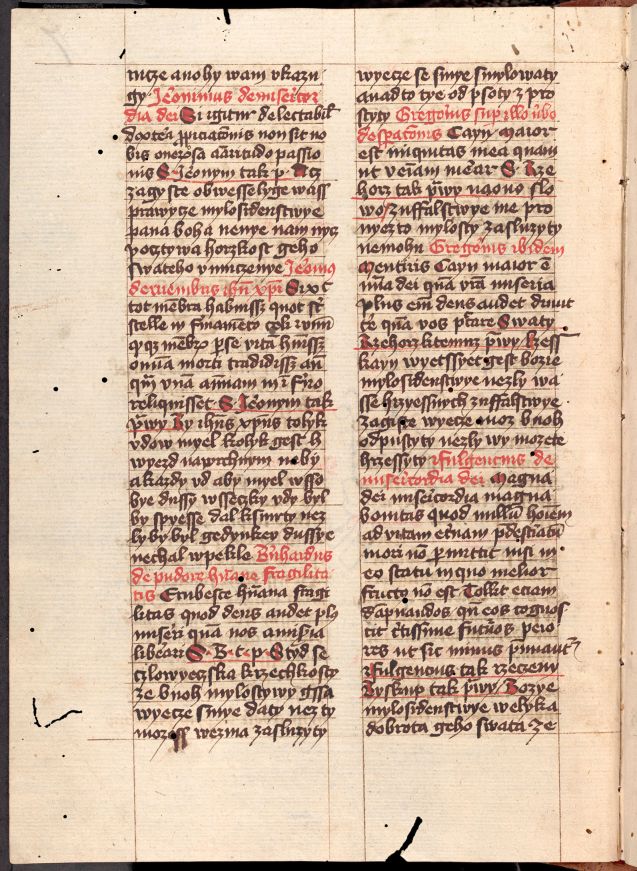 nicze a nohy wam vkazu
gy Jeronimus de misericor
dia dei Si igitur delectabil'
dextera propiciationis non sit no
bis onerosa claritudo passio
nis S. Jeronym tak p. Acz
zagyste obwesselyge wass
prawycze mylosidenstwye
pana boha nenye nam nycz
poczty wa horzkost geho
swateho vmuczenye Jeronimus
de vinentibus ihu xpi Si xpc
tot membra habuissz quot st
stelle in firmameto celi et vnu
qqz membro per se vita huissz
omnia morti tradidissz an
qm vna animam in inferno
reliquisset S. Jeronym tak
prwy By ihus xpus tolyk
vdow myel kolyk gest h
wyezd na wrchnym neby
a kazdy vd aby myel w sso
bye dussy wsseczky vdy byl
by spyesse dal k smrty nez
ly by byl gedynkey dussye
nechal w pekle Bernhardus
de pudore humane fragilita
tis Erubesce humana fragi
litas quod deus audet plus
miseri quam nos a miseria
liberari S. B. t. p. Styd se
czlowyeczska krzechkosty
ze b noh mylostywy gssa
wyecze smye daty nez ty
mozess wezma zasluzyty
wyecze se smye smylowaty
a nad to tye od psoty z pro
styty Gregorius sup illo verbo
desperationis Cayn Maior
est iniquitas mea quam
ut veniam merear S. Rze
horz tak prwy na ono slo
wo zuffalstwye me pro
nyez to mylosty zasluzyty
nemohu Gregorius ibidem
Mentiris Cayn maior e
mia dei qua vra miseria
plus em deus audet dimit
te qua vos peccare Swaty
Rzehorz k temuz prwy lzess
kayn wyetssyet gest bozie
mylosidenstwye nezly wa
sse hrzyessnych zuffalstwye
zagiste wyecze moz b noh
odpustyty nezly wy mozete
hrzessyty Fulgencius de
misericordia dei Magna
dei misericordia magna
bonitas quod nullum hominem
ad vitam eternam predestinatum
mori no permittit nisi in
eo statu in quo melior
fructus no est Tollit eciam
dapnandos qn eos cognos
cit certissime futuros peio
res ut sic minus puniant
Fulgencius tak rzeczeny
Byskup tak prwy Bozye
mylosidenstwye welyka
dobrota geho swata ze